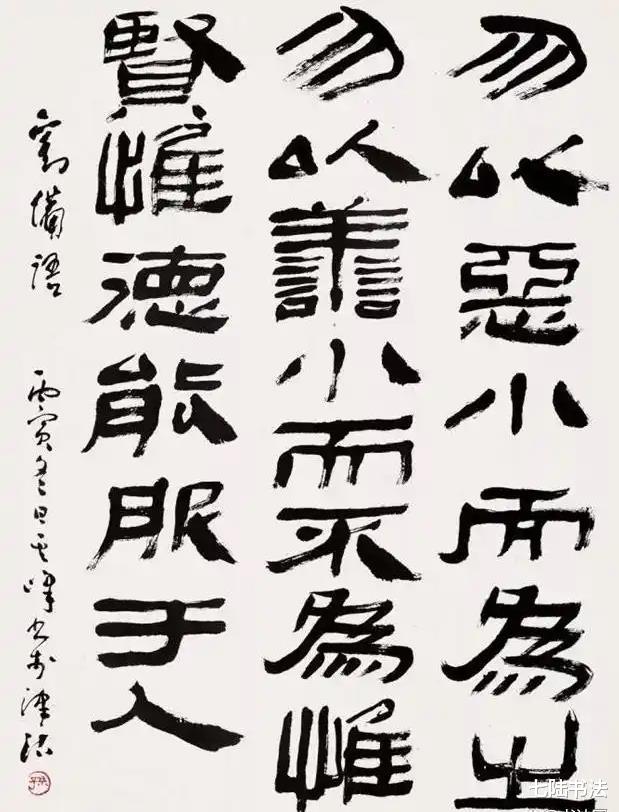 勿以惡小而為之
勿以譱小而不為惟
賢惟德能服于人
劉備語
丙寅冬日其峰书於津沽
七陆书法